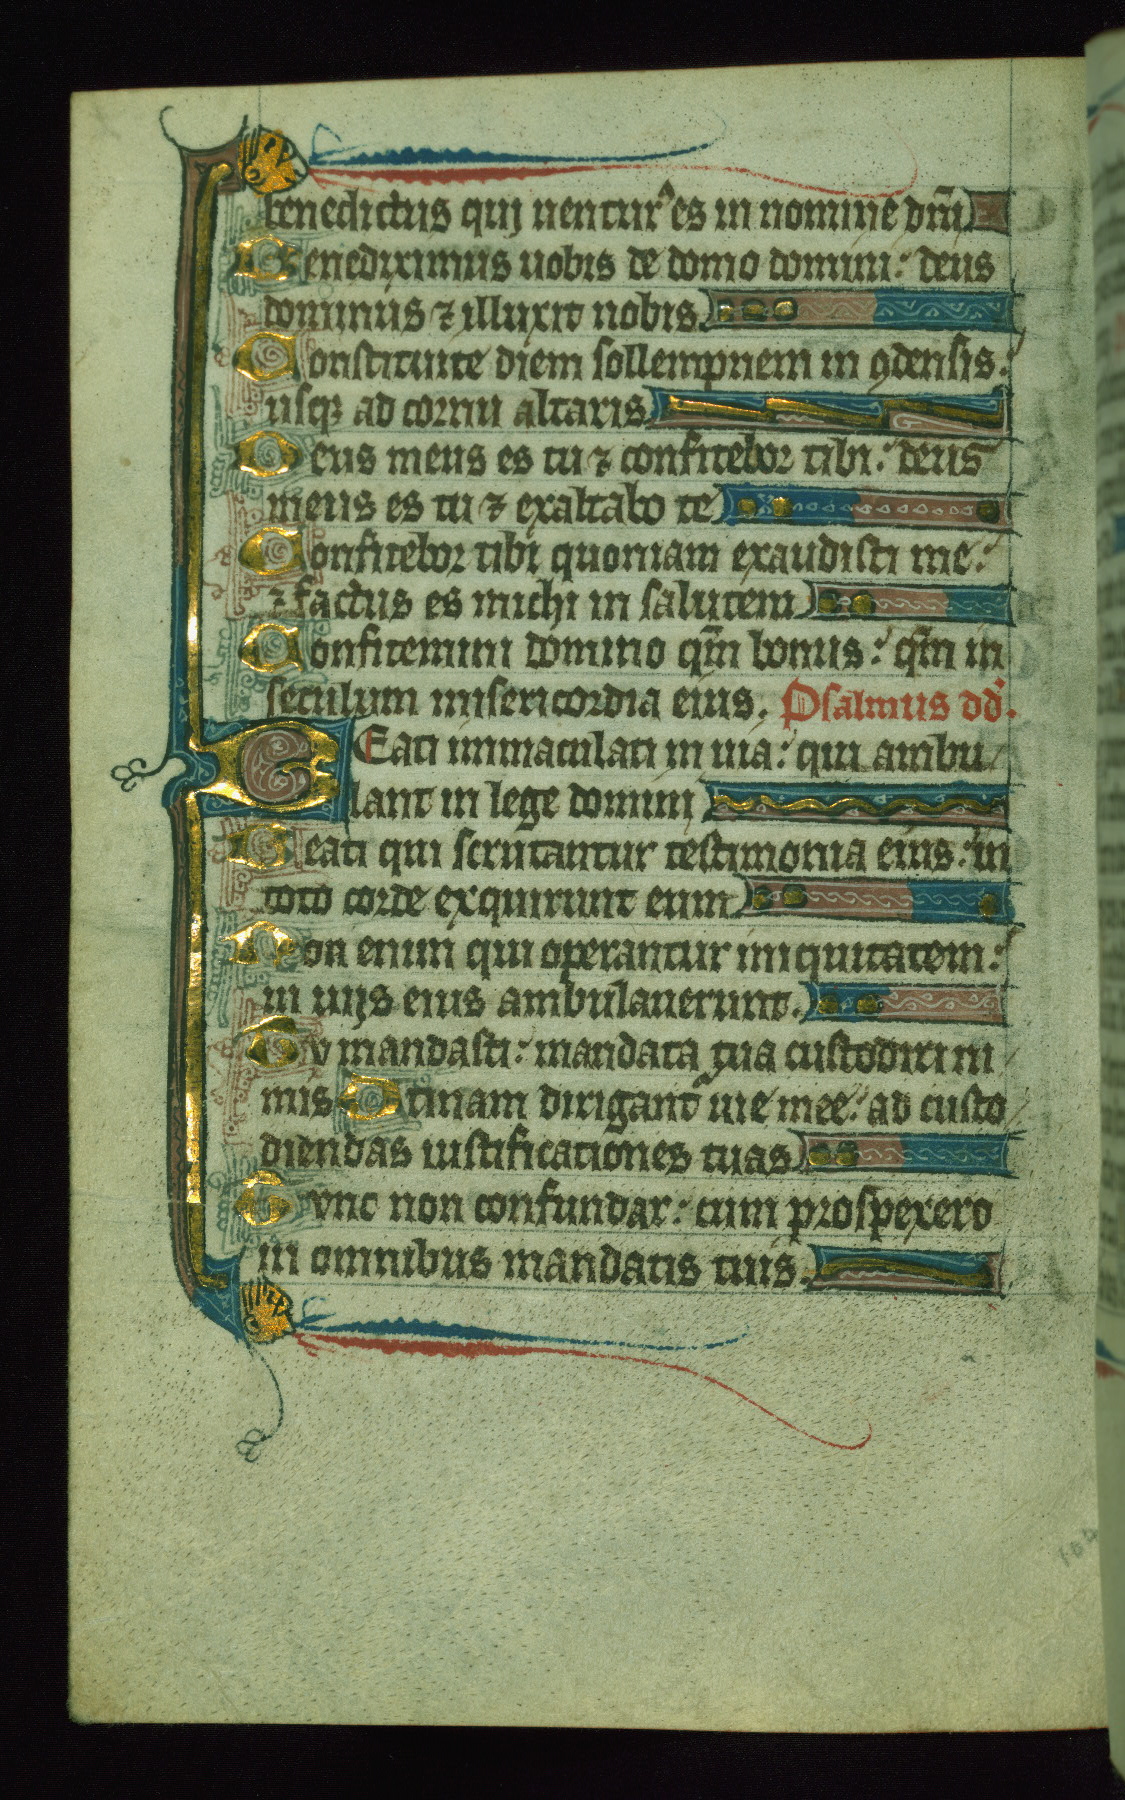 benedictus qui uentur᷒es in nomine dn̄i
Benediximus uobis de domo domini: deus
dominus ⁊ illuxit nobis.
Constituite diem sollempnem in ꝯdensis:
usqꝫ ad cornu altaris
Deus meus es tu ⁊ confitebor tibi: deus
meus es tu ⁊ exaltabo te
Confitebor tibi quoniam exaudisti me:
⁊ factus es michi in salutem
Confitemini domino qm̄ bonus: qm̄ in
seculum misericordia eius. Psalmus dd̾.
BEati immaculati in uia: qui ambu
lant in lege domini
Beati qui scrutantur testimonia eius: in
toto corde exquirunt eum
Non enim qui operantur iniquitatem:
in uijs eius ambulauerunt.
Tv mandasti: mandata tua custodiri ni
mis Vtinam dirigant᷑ uie mee: ad custo
diendas iustificationes tuas
Tvnc non confundar: cum prospexero
in omnibus mandatis tuis.